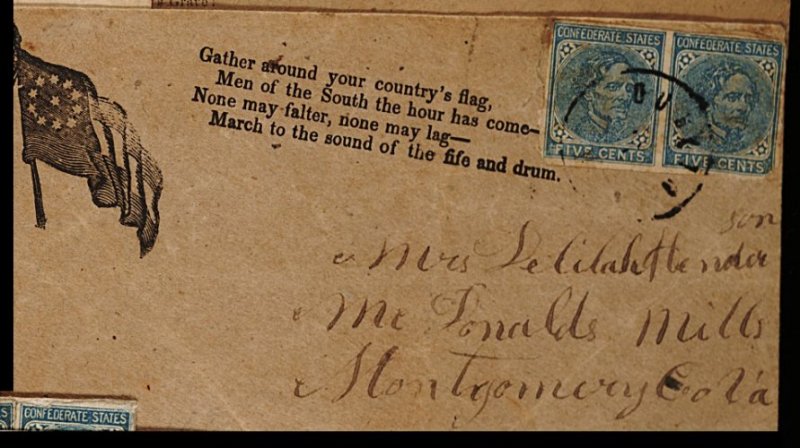 Grave!
Gather around your country's flag,
Men of the South the hour has come—
None may falter, none may lag—
March to the sound of the fife and drum.
CONFEDERATE STATES
FIVE CENTS
CONFEDERATE STATES
FIVE CENTS
DUBLIN
Mrs Delilah Hender
son
Mc Donalds Mills
Montgomery Co Va
CONFEDERATE STATES